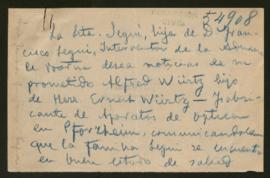 54908
La Srta. Seguí, hija de D. Fran-
cisco Seguí, Interventor de la
desea noticias de su
prometido Alfred Würtz hijo
de Herr Ernest Würtz - Fabri-
cante de Aparatos de Optica
en Pforzheim, comunicandole
que la familia Seguí se encuentra
en buen estado de salud